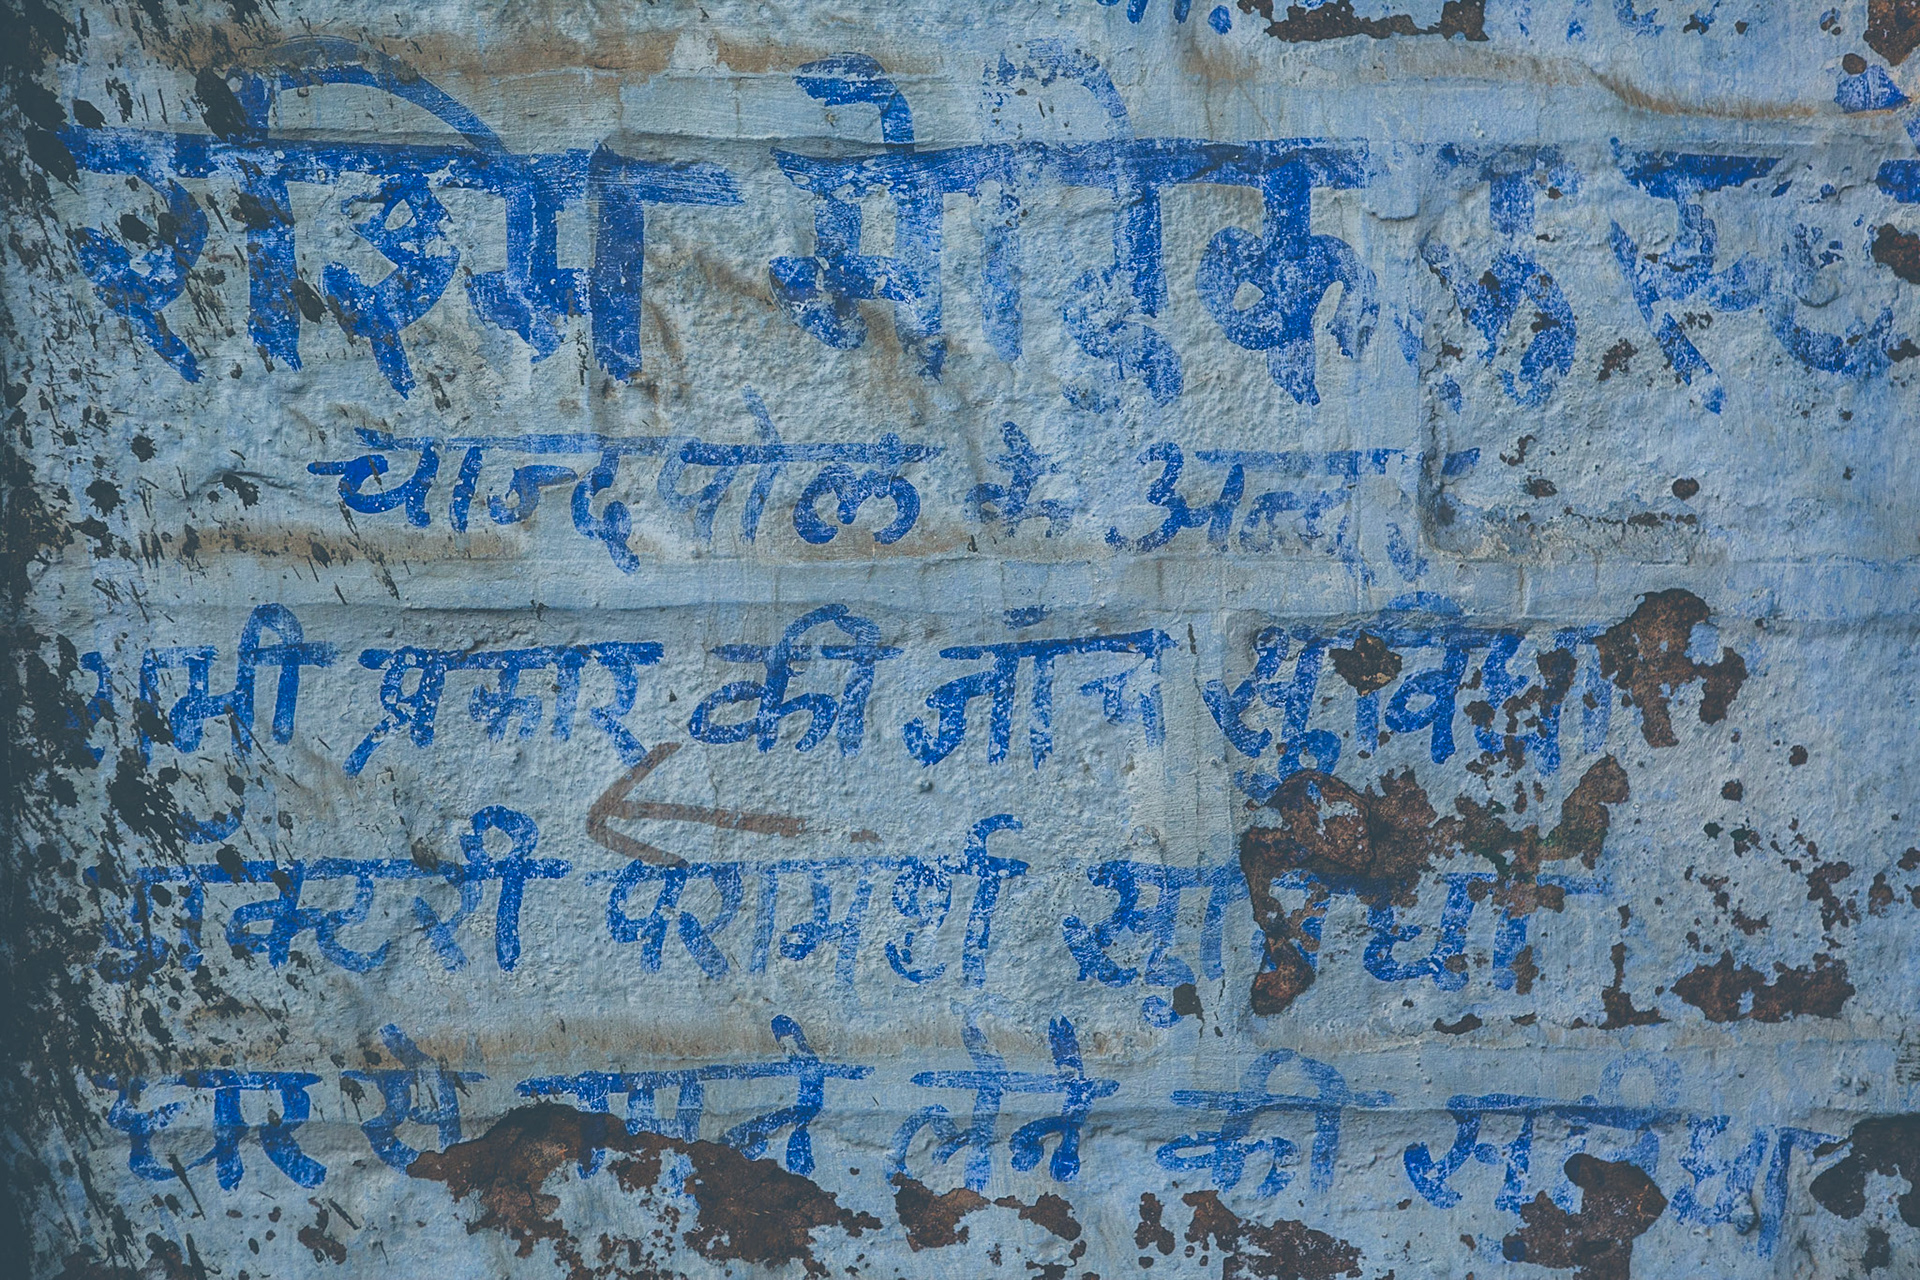 रश्मि मेडिकल
चान्दपोल के अन्दर
सभी प्रकार की जांच सुविधा
डाक्टरी परामर्श सुविधा
घर से लेने की सुविधा